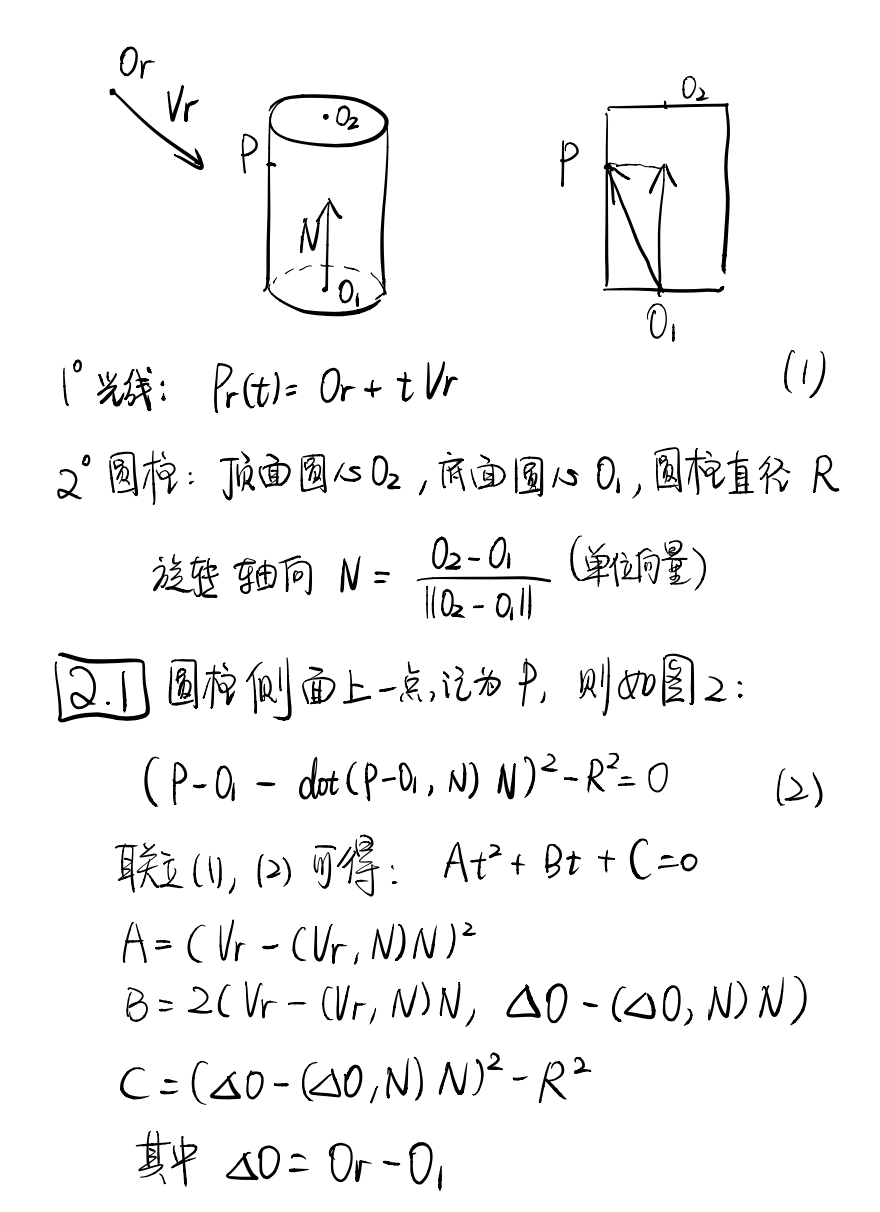 Or
Vr
P
O₂
N
O₁
O₂
P
O₁
1° 光线: Pr(t) = Or + tVr (1)
2° 圆柱: 顶面圆心O₂, 底面圆心O₁, 圆柱直径 R
旋转轴向 N = (O₂-O₁)/||O₂-O₁|| (单位向量)
2.1 圆柱侧面上一点,记为P, 则如图2:
(P-O₁ - dot(P-O₁, N) N)² - R² = 0 (2)
联立(1), (2) 可得: At² + Bt + C = 0
A = (Vr - (Vr, N)N)²
B = 2(Vr - (Vr, N)N, ΔO - (ΔO, N)N)
C = (ΔO - (ΔO, N) N)² - R²
其中 ΔO = Or - O₁